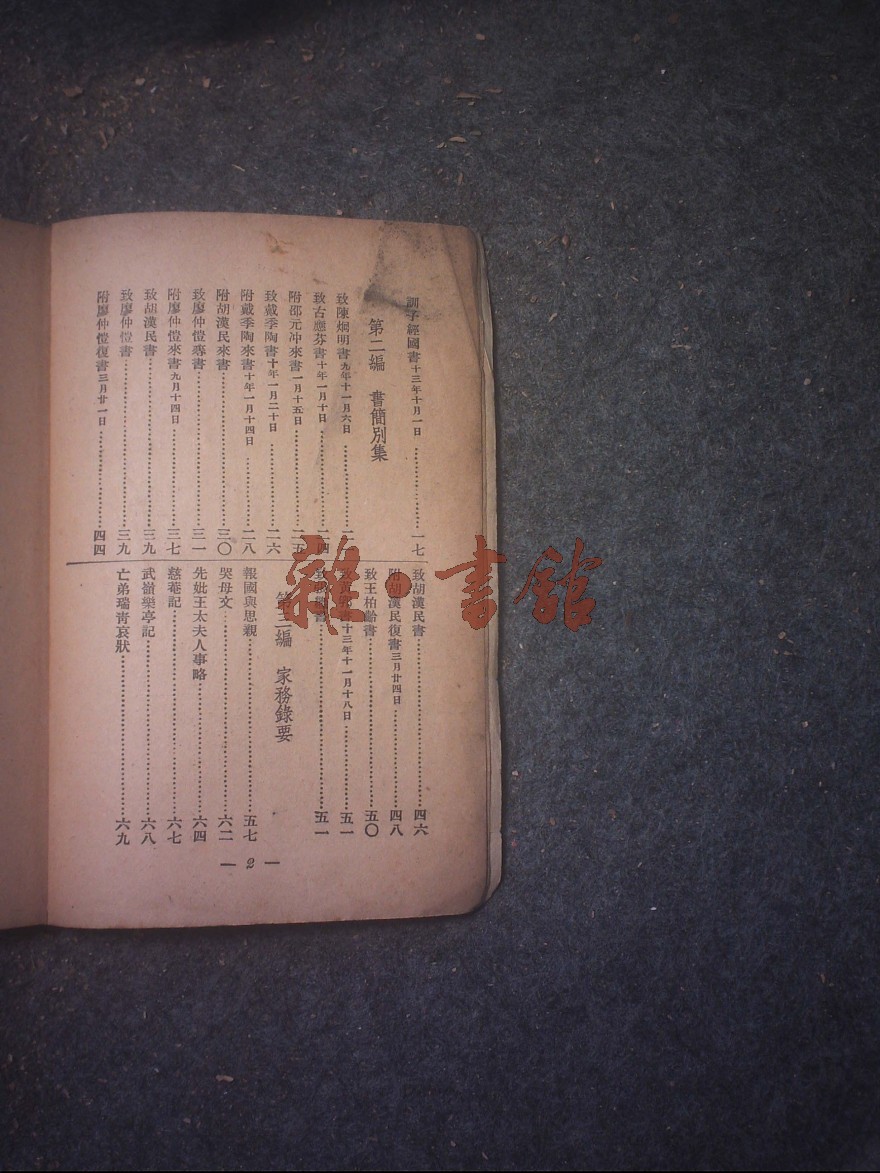 訓子經國書十三年十月一日………………一七
第二編 書簡別集
致陳烱明書九年十一月六日………………二
致古應芬書十年一月十日………………二四
附邵元冲來書一月十五日………………二五
致戴季陶書十年一月二十日………………二六
附戴季陶來書十年一月十四日………………二八
附胡漢民來書………………三〇
致廖仲愷書………………三一
附廖仲愷來書九月十四日………………三七
致胡漢民書………………三九
致廖仲愷書………………三九
附廖仲愷復書三月廿一日………………四四
致胡漢民書………………四六
附胡漢民復書三月廿四日………………四八
致王柏齡書………………五〇
致黃書十三年十一月十八日………………五一
致書………………五一
第三編 家務錄要
報國與思親………………五七
哭母文………………六二
先妣王太夫人事略………………六四
慈菴記………………六七
武嶺樂亭記………………六八
亡弟瑞青哀狀………………六九
— 2 —
雜·書館